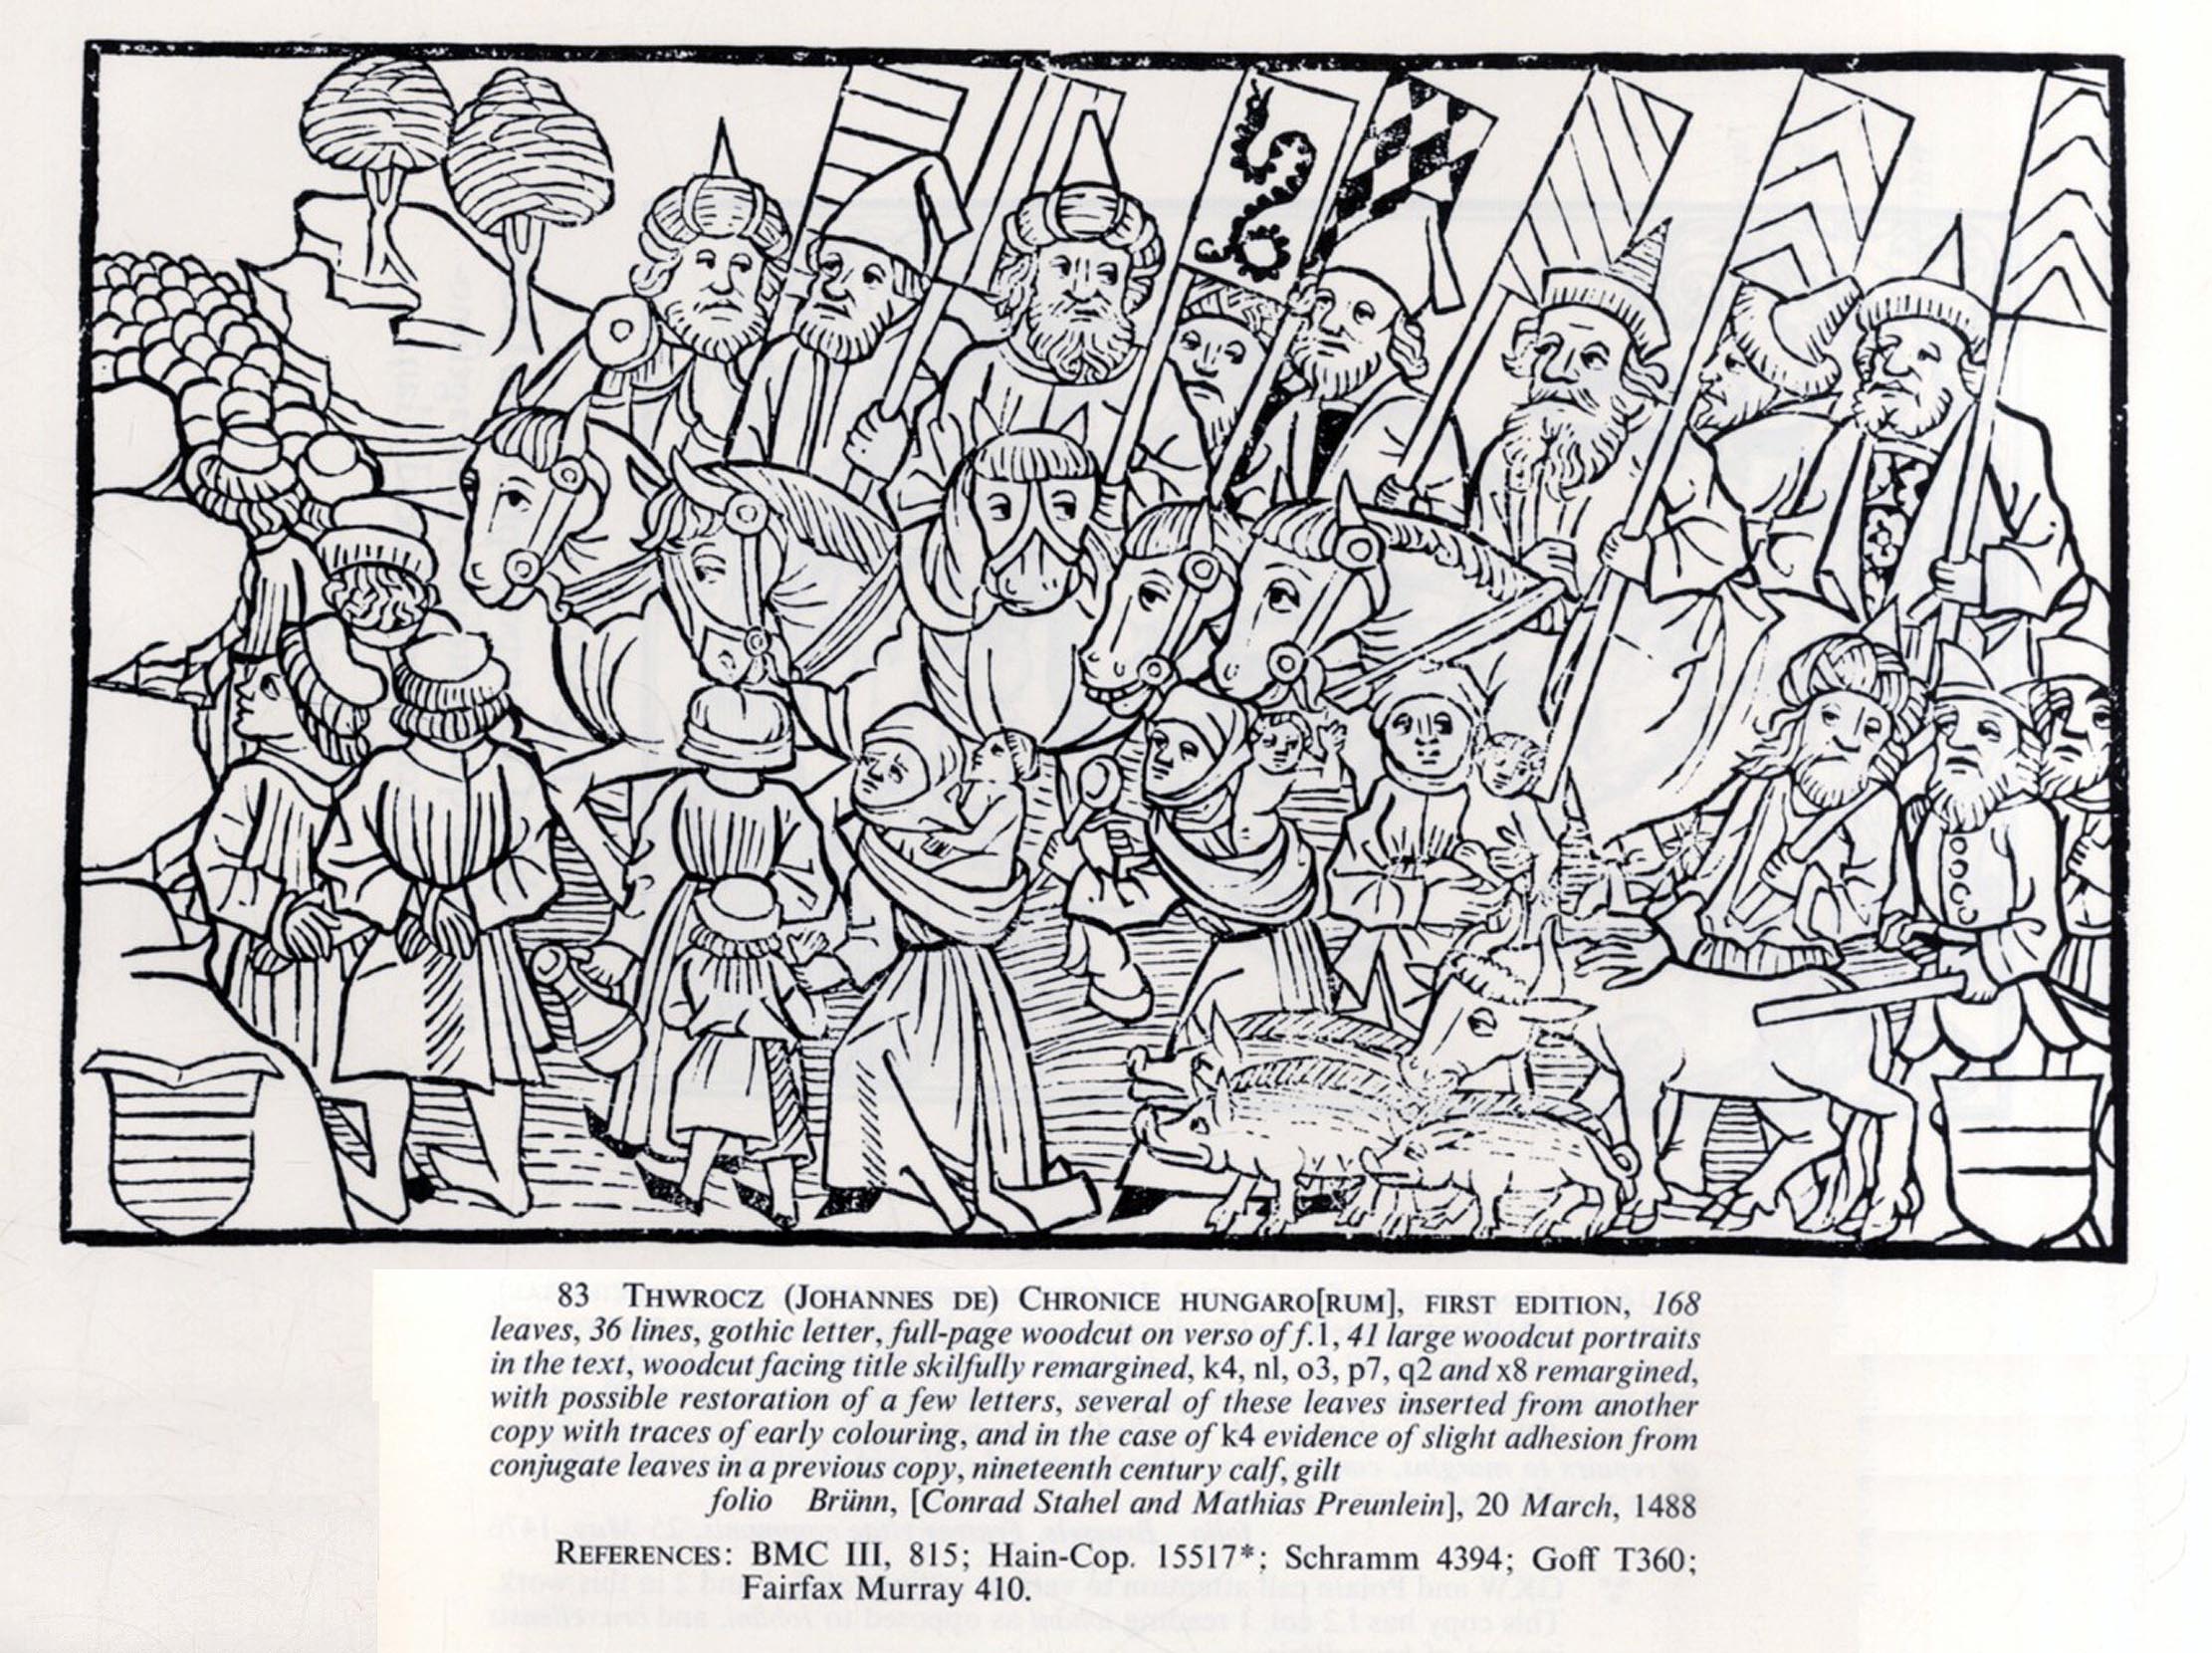 83 THWROCZ (JOHANNES DE) CHRONICE HUNGARO[RUM], FIRST EDITION, 168
leaves, 36 lines, gothic letter, full-page woodcut on verso of f.1, 41 large woodcut portraits
in the text, woodcut facing title skilfully remargined, k4, nl, o3, p7, q2 and x8 remargined,
with possible restoration of a few letters, several of these leaves inserted from another
copy with traces of early colouring, and in the case of k4 evidence of slight adhesion from
conjugate leaves in a previous copy, nineteenth century calf, gilt
folio Brünn, [Conrad Stahel and Mathias Preunlein], 20 March, 1488
REFERENCES: BMC III, 815; Hain-Cop. 15517*; Schramm 4394; Goff T360;
Fairfax Murray 410.